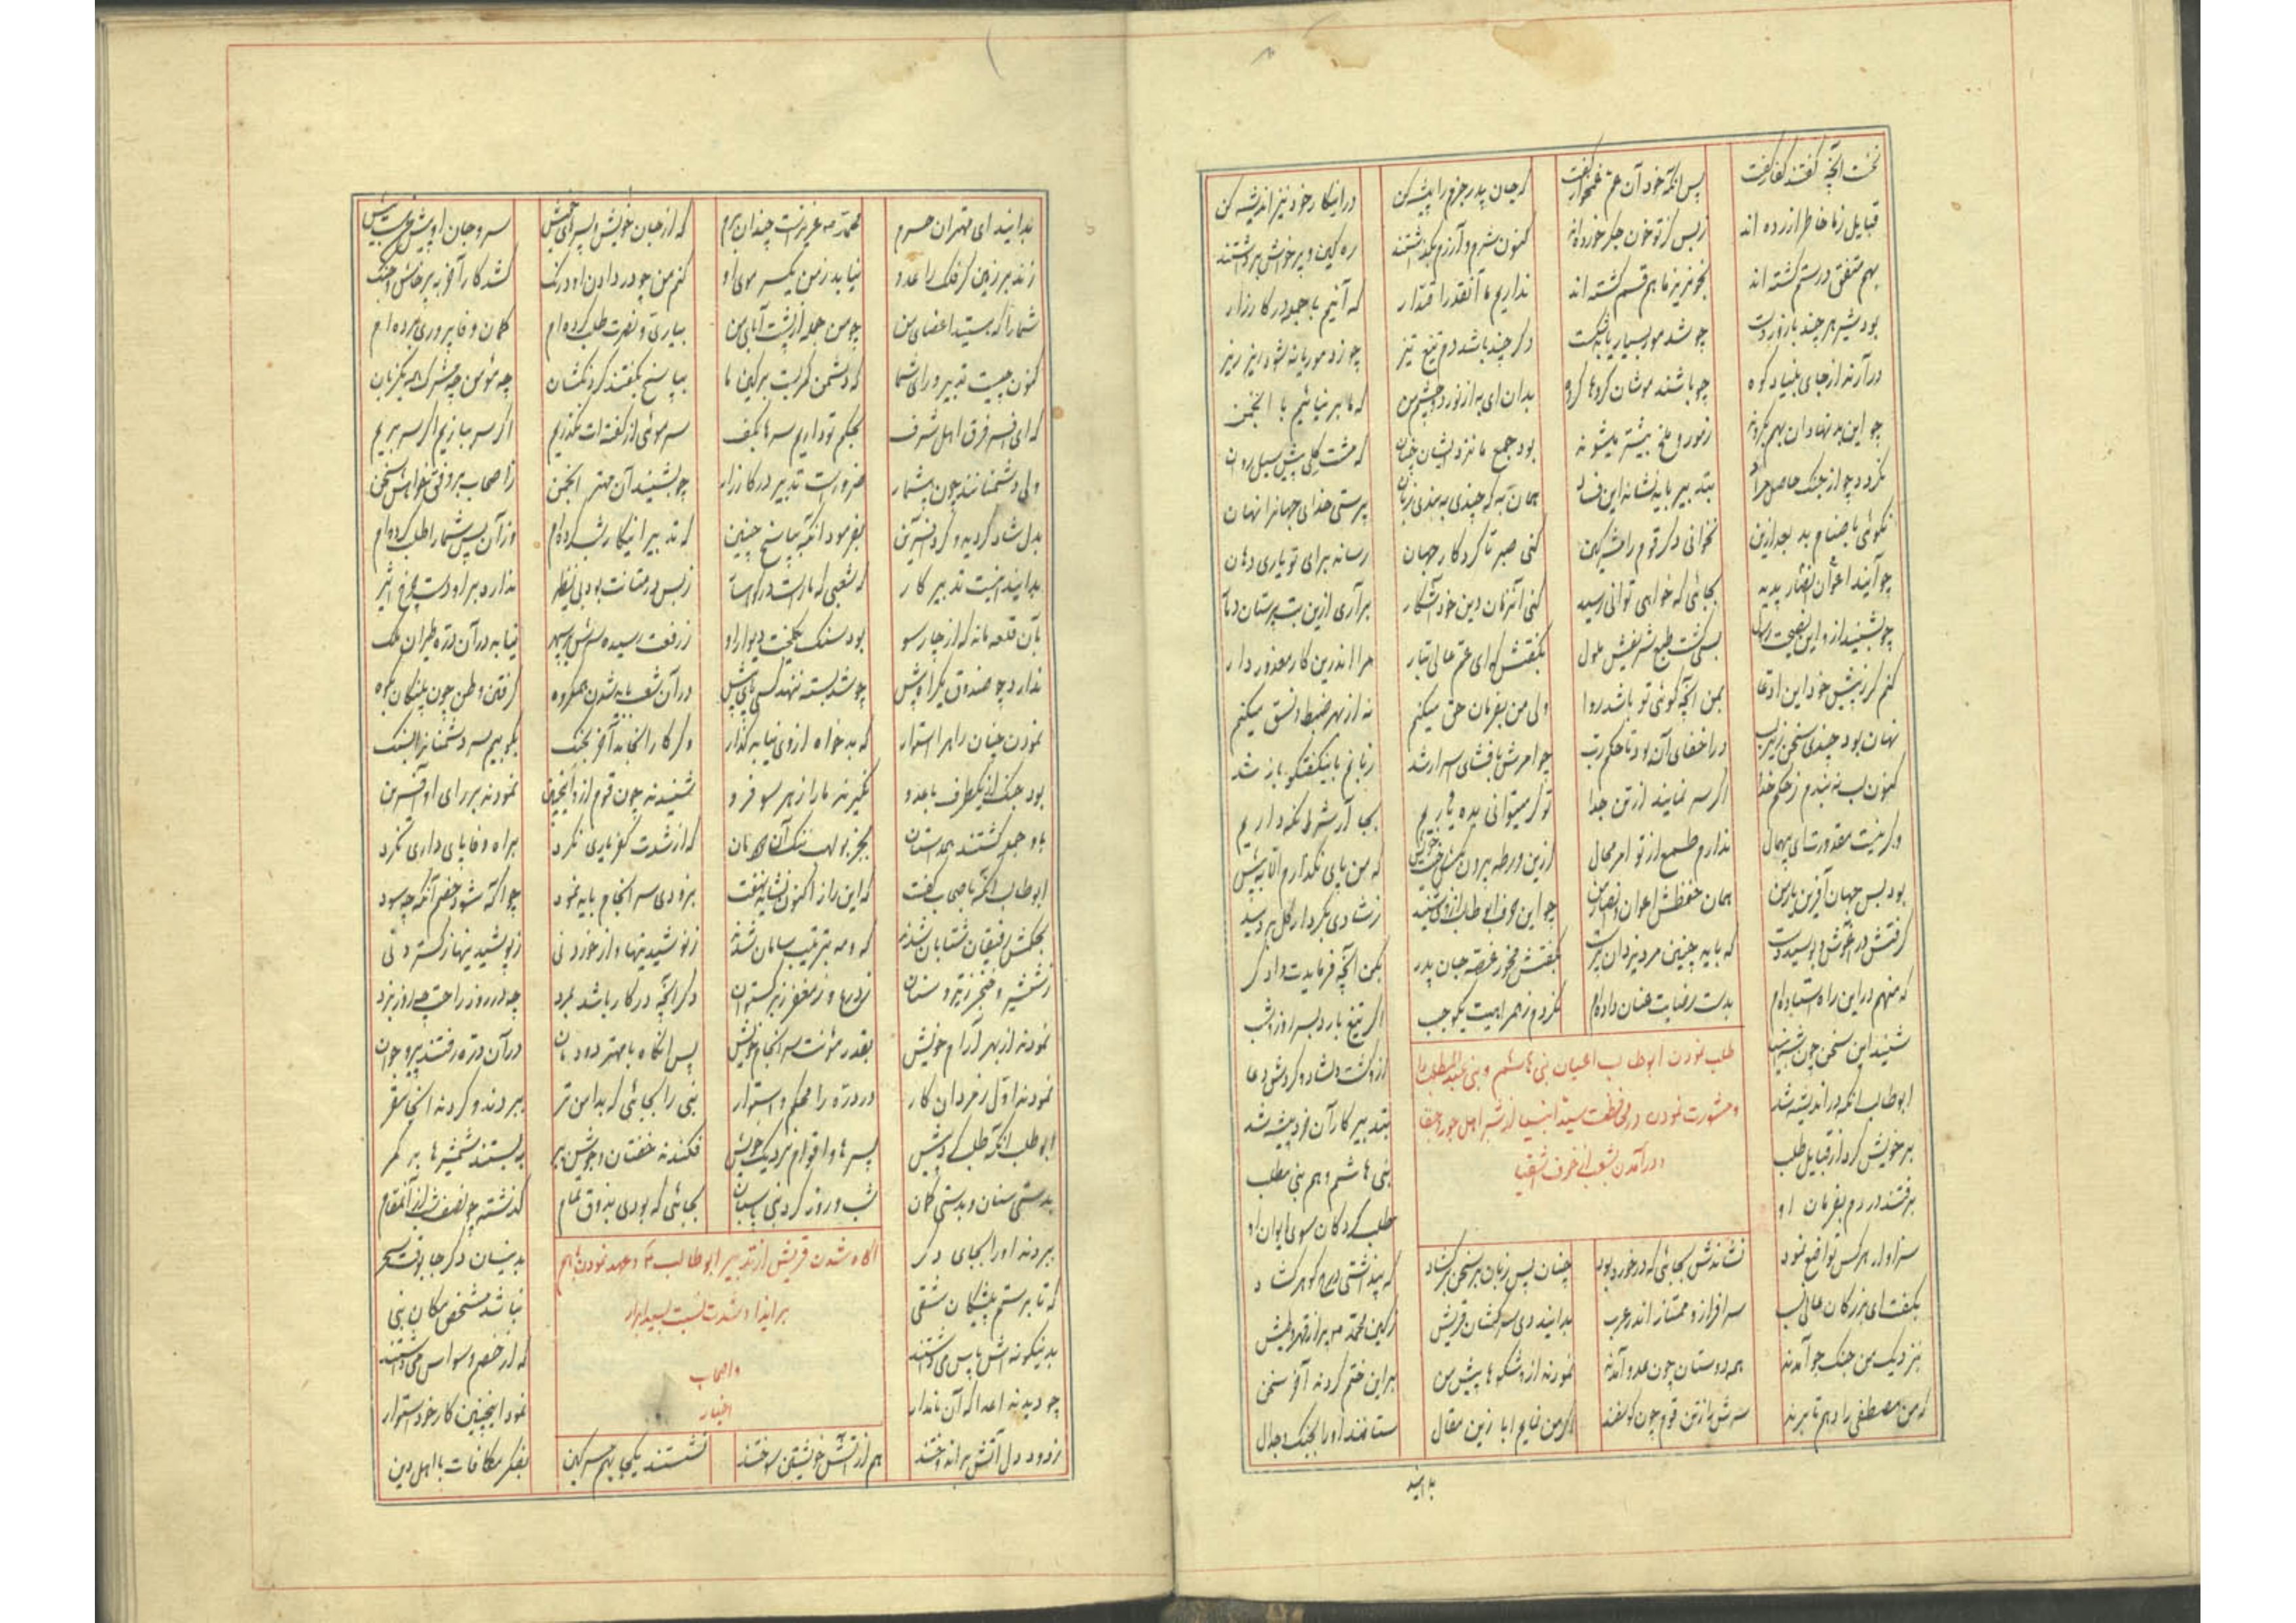 نخست آنچه گفتند کفار گفت پس آنگه خود آن عم غمخوار گفت که جان پدر جزم را پیشه کن در اینکار خود نیز اندیشه کن
قبایل ز ما خاطر آزرده اند ز بس کز تو خون جگر خورده اند کنون شرم و آزرم بگذاشتند ره کین و پرخاش برداشتند
بهم متفق در ستم گشته اند بخونریز ما هم قسم گشته اند نداریم ما آنقدر اقتدار که آئیم با جمله در کارزار
بود شیر هر چند با زور دست چو شد مور بسیار یابد شکست دگر چند باشد دم تیغ تیز چو زد موریانه شود ریز ریز
درآرند از جای بنیاد کوه چو باشند موشان گروها گروه بدان ای به از نور دو چشم من که ما بر نیائیم با انجمن
چو این بد نهادان بهم بگروند ز مور و ملخ بیشتر میشوند بود جمع ما نزد ایشان چنان که مشت گلی پیش سیل روان
نگردد چو از جنگ حاصل مراد بتدبیر باید نشاند این فساد همان به که چندی ببندی زبان پرستی خدای جهانرا نهان
نگوئی باصنام بد بعد ازین نخوانی دگر قوم را مشرکین کنی صبر تا کردگار جهان رساند برای تو یاری دهان
چو آیند اعوان انصار پدید بجائی که خواهی توانی رسید کنی آنزمان دین خود آشکار برآری ازین بت پرستان دمار
چو بشنید ازو این نصیحت رسول بسی گشت طبع شریفش ملول بگفتش که ای عم عالی تبار مرا اندرین کار معذور دار
کنم گر ز پیش خود این ادعا بمن آنچه گوئی تو باشد روا ولی من بفرمان حق میکنم نه از بهر ضبط و نسق میکنم
نهان بود چندی سخن زیر لب در اخفای آن بود تا حکم رب چو امرش بافشای اسرار شد زبانم باینگفتگو باز شد
کنون لب نه بندم ز حکم خدا اگر سر نمایند از تن جدا تو گر میتوانی بده یاریم بجا آر شرط نگه داریم
وگر نیست مقدورت ای پهمال ندارم طمع از تو امر محال ازین ورطه بیرون بکش رخت خویش که من پای نگذارم الا به پیش
بود بس جهان آفرین یار من همان حفظش اعوان و انصار من چو این حرف ابوطالب از وی شنید ز شادی بکردار گل بر دمید
گرفتش در آغوش و بوسید دست که باید چنین مرد یزدان پرست بگفتش مخور غصه جان پدر بکن آنچه فرمایدت دادگر
که منهم در این راه استاده ام بدست رضایت عنان داده ام نگردم ز همراهیت یکوجب اگر تیغ بارد بسر روز و شب
شنید این سخن چون شه انبیا ازو گشت دلشاد و کردش دعا
ابوطالب آنگه در اندیشه شد بتدبیر کار آن خرد پیشه شد
بر خویش کرد از قبایل طلب بنی هاشم و هم بنی مطلب
برفتند در دم بفرمان او طلب کردگان سوی ایوان او
طلب نمودن ابوطالب اعیان بنی هاشم و بنی عبدالمطلب را
و مشورت نمودن در محافظت سید انبیا از شر اهل جور و جفا
و در آمدن بشعب از خوف اشقیا
سزاوار هرکس تواضع نمود نشاندش بجائی که در خورد بود چنان پس زبان بر سخن برگشاد که پنداشتی درج گوهر گشاد
بگفت ای بزرگان عالی نسب سرافراز و ممتاز اندر عرب بدانید دی سرکشان قریش ز کین محمد ص پر از قهر و طیش
بنزدیک من جنگ جو آمدند همه دوستان چون عدو آمدند نمودند از او شکوها پیش من بر این ختم کردند آخر سخن
که من مصطفی را دهم تا برند سرش را ز تن قوم چون گوسفند اگر من نمایم ابا زین مقال ستانند او را بجنگ و جدال
بدانید
بدانید ای مهتران حرم محمد ص عزیزست چندان برم که از جان خویش و پسرهای خویش سر و جان او بیش خواهمش
زند بر زمین گر فلک را عدو نیابد ز من یکسر موی او کنم من چو در دادن او درنگ کشد کار آخر به پرخاش و جنگ
شما را که هستید اعضای من چو من جمله از پشت آبای من بیاری و نصرت طلب کرده ام گمان وفا پروری برده ام
کنون چیست تدبیر و رای شما که دشمن کمر بست بر کین ما بپاسخ بگفتند گردنکشان چه مؤمن چه مشرک همه یکزبان
که ای افسر فرق اهل شرف بحکم تو داریم سرها بکف سر موئی از گفته ات نگذریم اگر سر ببازیم اگر سر بریم
ولی دشمنانند چون بیشمار ضرورست تدبیر در کارزار چو بشنید آن مهتر انجمن ز اصحاب بر وفق خواهش سخن
بدل شاد گردید و کرد آفرین بفرمود آنگه بپاسخ چنین که تدبیر اینکار شب کرده ام وز آن پس شما را طلب کرده ام
بدانید اینست تدبیر کار که شعبی که ما راست در کوهسار ز بس در متانت بود بی نظیر ندارد بر او دست چرخ اثیر
بآن قلعه ماند که از چار سو بود سنگ یکلخت دیوار او ز رفعت رسیده سرش بر سپهر نیابد در آن دره طیران ملک
ندارد چو صندوق یکرا بیش چو شد بسته ننهد کسی پای پیش در آن شعب باید شدن همگروه گرفتن وطن چون پلنگان بکوه
نمودن چنان راه را استوار که بدخواه از وی نیابد گذار وگر کار انجامد آخر بجنگ بکوبیم سر دشمنانرا بسنگ
بود جنگ از یکطرف با عدو نگیرند ما را ز هر سو فرو شنیدند چون قوم ازو اینچنین نمودند بر رای او آفرین
باو جمله گشتند همداستان بجز بولهب ننگ آن دودمان که از شدت کفر یاری نکرد براه وفا پایداری نکرد
ابوطالب آنگه باصحاب گفت که این راز اکنون نشاید نهفت بزودی سرانجام باید نمود چو آگه شود خصم آنگه چه سود
بحکمش رفیقان شتابان شدند که و مه بترتیب سامان شدند ز نوشیدنیها و از خوردنی ز پوشیدنیها ز گستردنی
ز شمشیر و خنجر ز تیر و سنان ز درع و ز مغفر ز برگستوان دگر آنچه در کار باشد بمرد چه در روز راحت چه روز نبرد
نمودند از بهر آرام خویش بقدر مؤنت سرانجام خویش پس آنگاه با مهتر دودمان در آن دره رفتند پیر و جوان
نمودند اول ز مردان کار در دره را محکم و استوار نبی را بجائی که بد امن تر ببردند و کردند آنجا مقر
ابوطالب آنگه طلب کرد پیش پسرها و اقوام نزدیک خویش فکندند خفتان و جوشن ببر ببستند شمشیرها بر کمر
بدستی سنان و بدستی کمان شب و روز گرد نبی پاسبان بجائی که بودی بذوق تمام گذشته چو نصف شب از آنمقام
ببردند او را بجای دگر بدینسان دگر جا بوقت سحر
که تا بر ستم پیشگان شقی نباشد مشخص مکان نبی
بدینگونه اش پاس میداشتند که از خصم وسواس میداشتند
چو دیدند اعدا که آن نامدار نمود اینچنین کار خود استوار
آگاه شدن قریش از تدبیر ابوطالب و عهد نمودن باهم
بر ایذا و شدت نسبت بسید ابرار
و اصحاب
اخیار
ز دود دل آتش برانداختند هم از آتش خویشتن سوختند نشستند یکجا بهم مشرکین بفکر مکافات با اهل دین